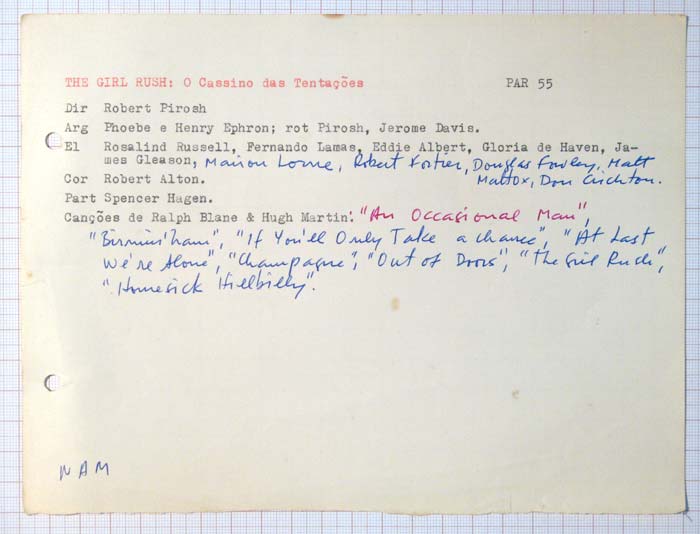 THE GIRL RUSH: O Cassino das Tentações PAR 55
Dir Robert Pirosh
Arg Phoebe e Henry Ephron; rot Pirosh, Jerome Davis.
El Rosalind Russell, Fernando Lamas, Eddie Albert, Gloria de Haven, Ja-
mes Gleason, Marion Lorne, Robert Fortier, Douglas Fowley, Matt
Mattox, Don Crichton.
Cor Robert Alton.
Part Spencer Hagen.
Canções de Ralph Blane & Hugh Martin: "An Occasional Man",
"Birmin'ham", "If You'll Only Take a chance", "At Last
We're Alone", "Champagne", "Out of Doors", "The Girl Rush",
"Homesick Hillbilly".
NAM